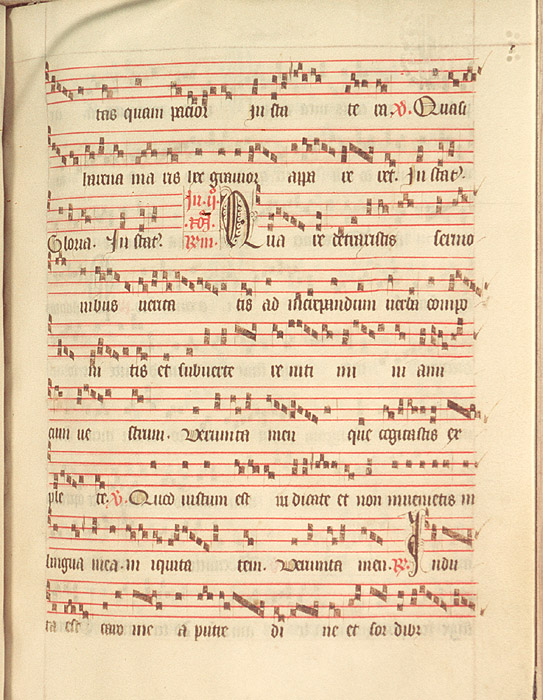 tas quam pacior In sta te ra. V. Quasi
harena ma ris hec grauior appa re ret. In stat.
Gloria. In stat. In. ij. Rm. Qua re detraxistis sermo
nibus uerita tis ad increpandum uerba compo
ni tis et subuerte re niti mi ni ami
cum ue strum. Verumta men que cogitastis ex
ple te. V. Quod iustum est iudicate et non inuenietis in
lingua mea in iquita tem. Verumta men. R. Indu
ta est caro me a putre di ne et sordibus